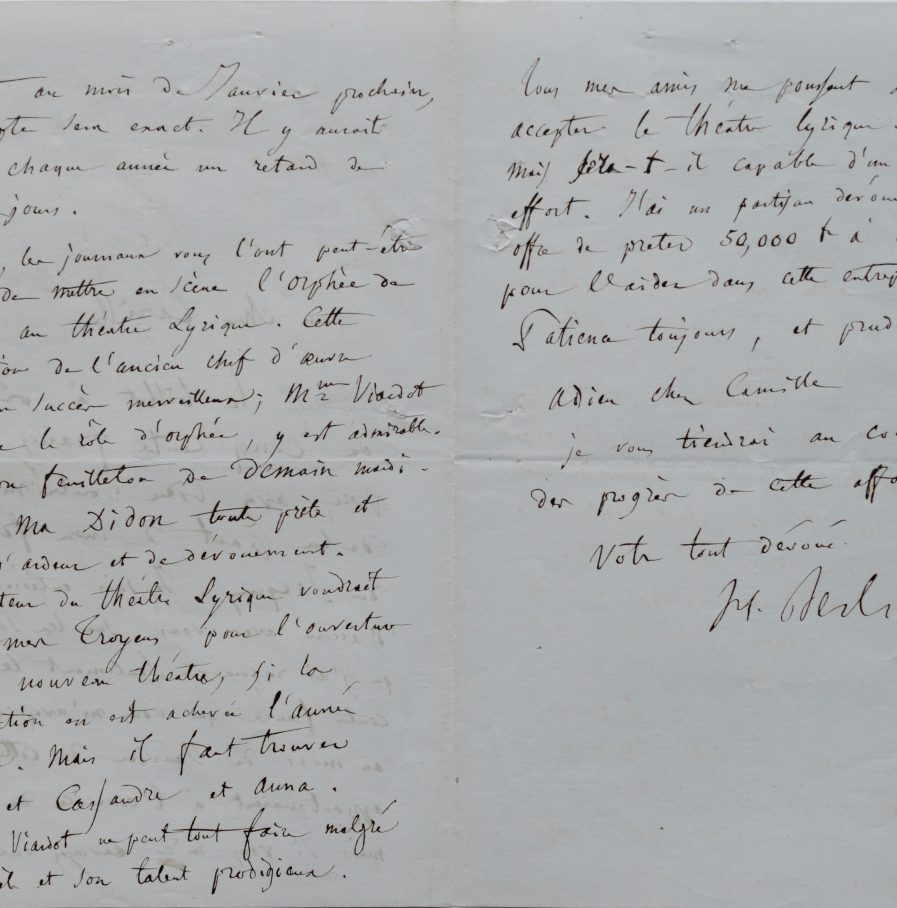 au mois de Janvier prochain,
sera exact. Il y aurait
chaque année un retard de
jours.
, les journaux vous l'ont peut-être
de mettre en scène l'orphée de
au théâtre Lyrique. Cette
de l'ancien chef d'œuvre
succès merveilleux; Mme Viardot
le rôle d'orphée, y est admirable.
feuilleton de Demain mardi.
Ma Didon toute prête et
d'ardeur et de dévouement.
du théâtre Lyrique voudrait
mes Troyens pour l'ouverture
nouveau théâtre, si la
en est achevée l'année
. Mais il faut trouver
et Cassandre et anna.
Viardot ne peut tout faire malgré
et son talent prodigieux.
Tous mes amis me poussent
accepter le théâtre lyrique.
Mais sera-t-il capable d'un
effort. J'ai un partisan dévoué
offre de prêter 50,000 fr à
pour l'aider dans cette
Patience toujours, et
adieu cher Camille
je vous tiendrai au
des progrès de cette
Votre tout dévoué.
H. Berl